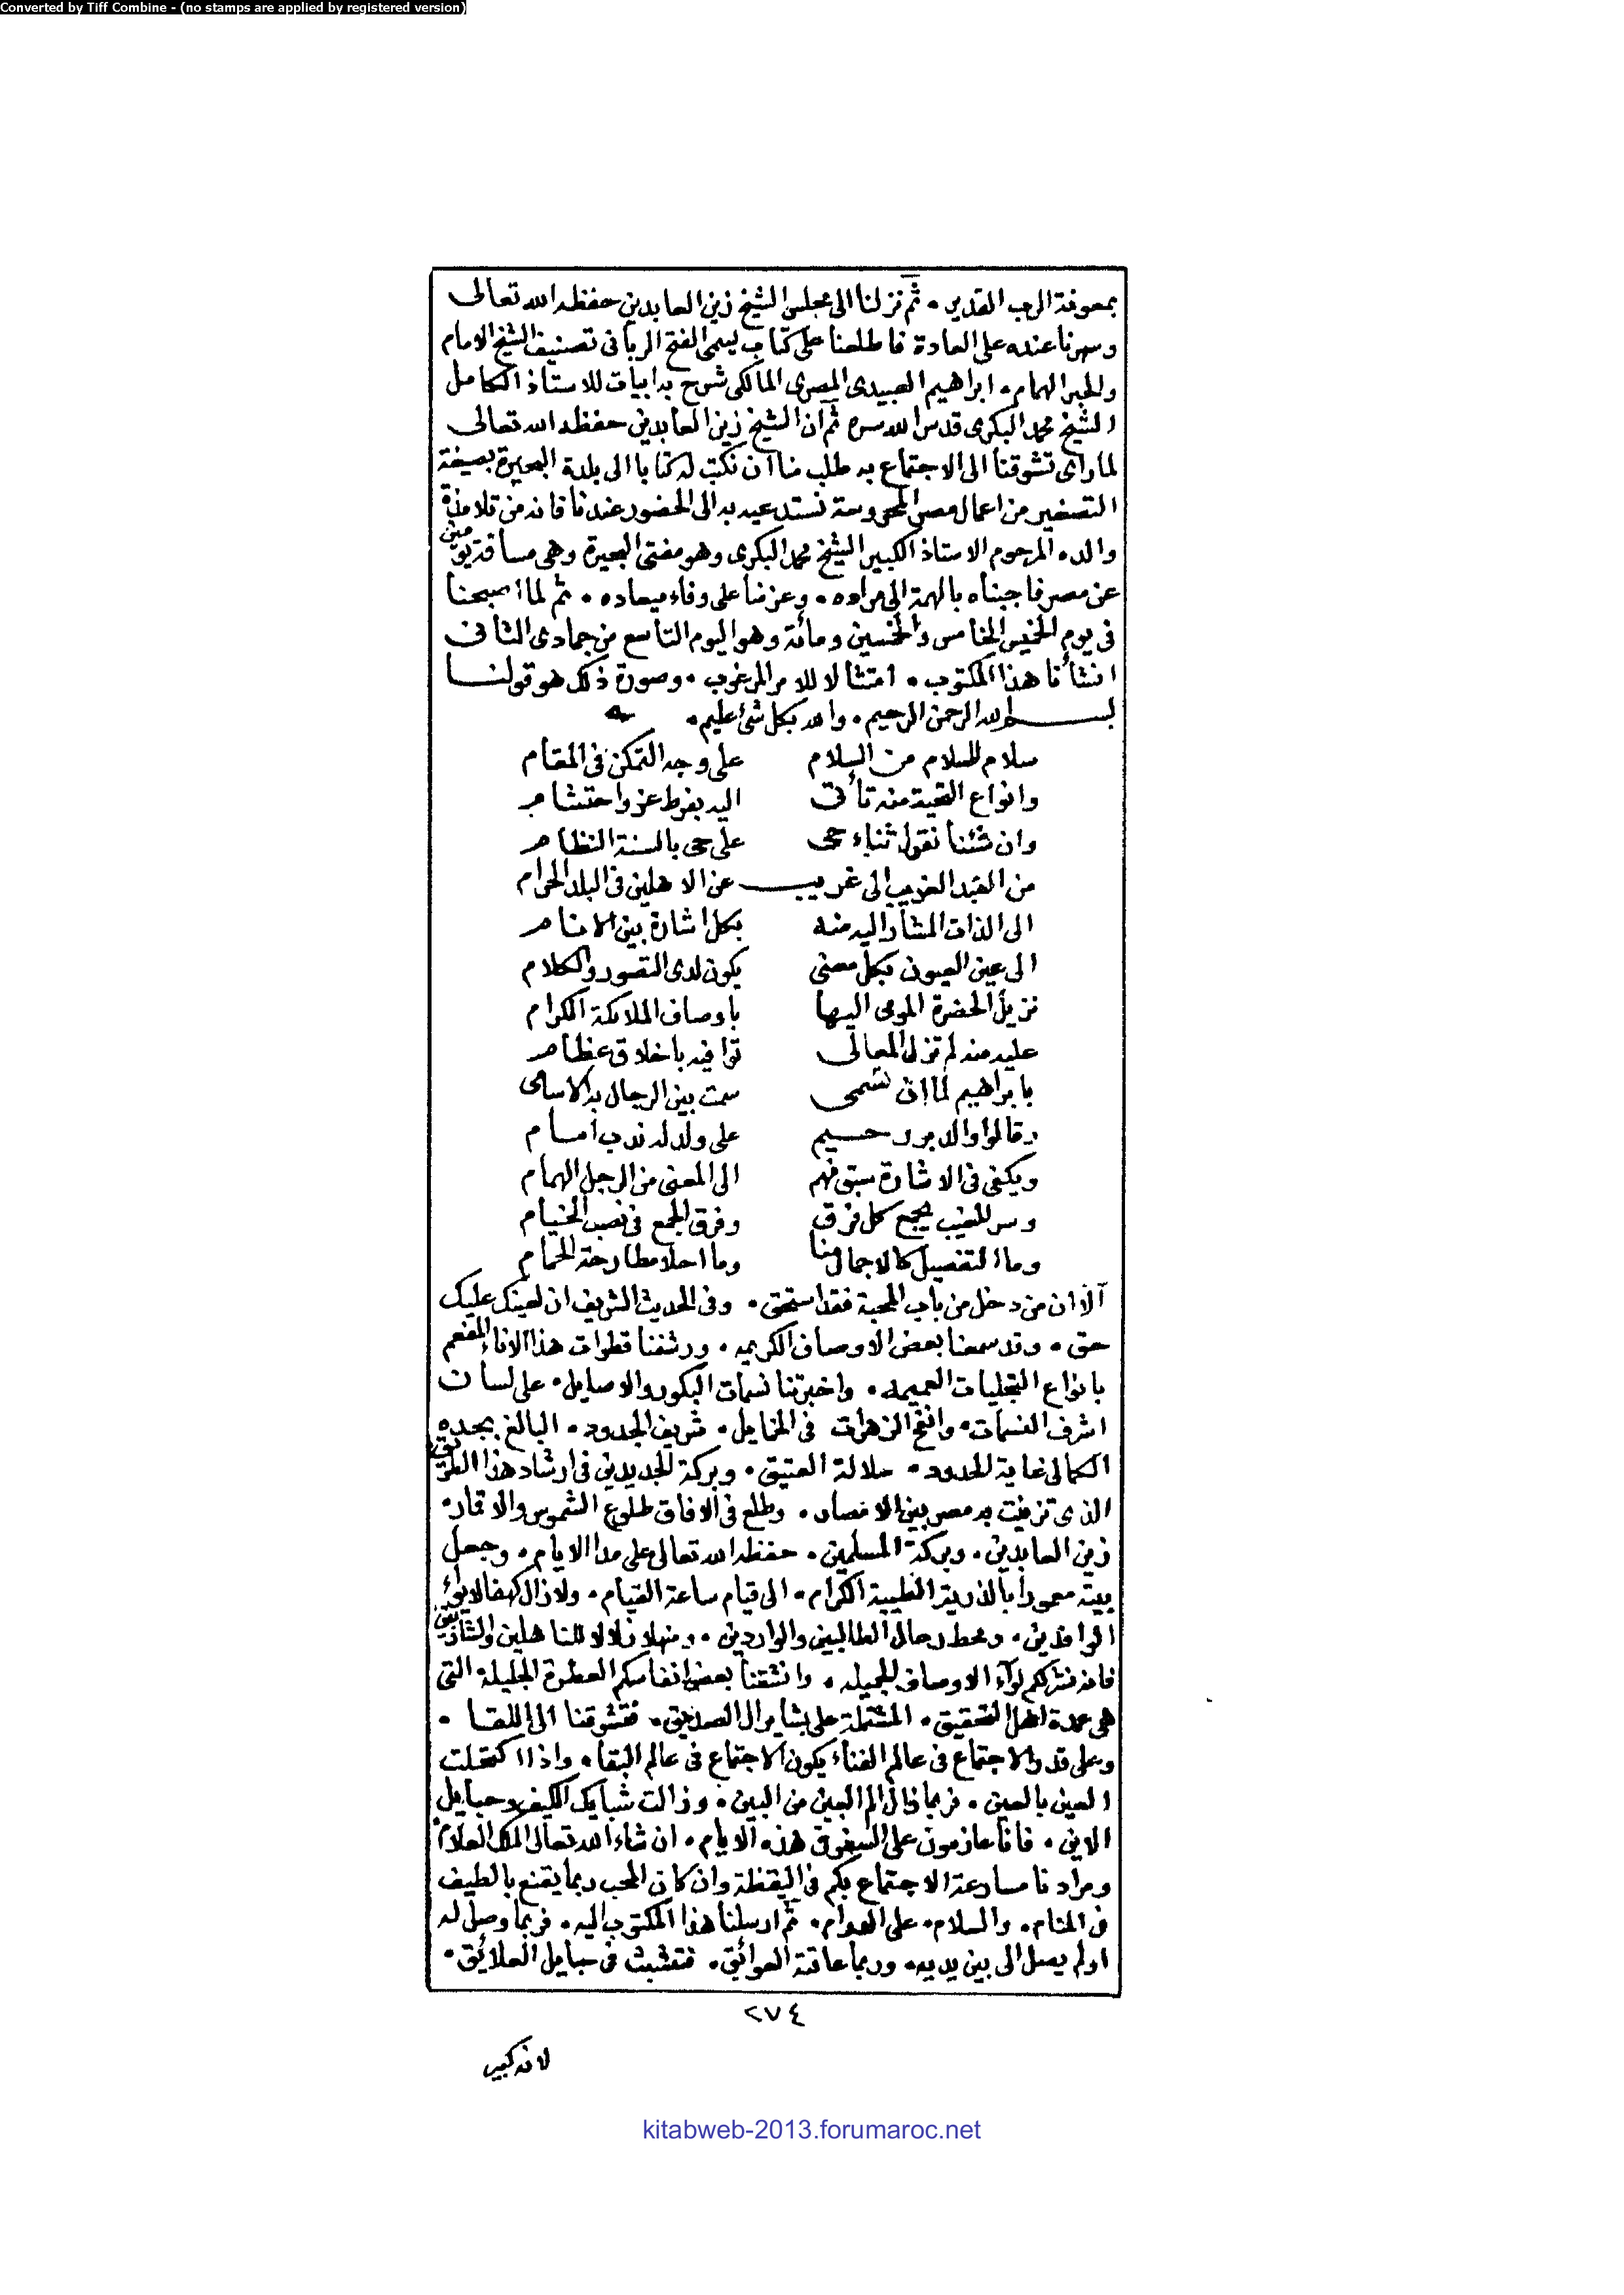 Converted by Tiff Combine - (no stamps are applied by registered version)
بمعونة الرب القدير • ثم نزلنا الى مجلس الشيخ زين العابدين حفظه الله تعالى
وسهرنا عنده على العادة فاطلعنا على كتاب يسمى الفتح الربانى تصنيف الشيخ الامام
والحبر الهمام • ابراهيم العبيدى المصرى المالكى شرح به ابيات للاستاذ الكامل
الشيخ محمد البكرى قدس الله سره ثم ان الشيخ زين العابدين حفظه الله تعالى
لما راى تشوقنا الى الاجتماع به طلب منا ان نكتب له كتابا الى بلدة البحيرة بصيغة
التصغير من اعمال مصر المحروسة نستدعيه به الى الحضور عندنا فانه من تلامذة
والده المرحوم الاستاذ الكبير الشيخ محمد البكرى وهو مفتى البحيرة وهى مسافة يومين
عن مصر فاجبناه بالهمة الى مراده • وعزمنا على وفاء ميعاده • ثم لما اصبحنا
فى يوم الخميس الخامس والخمسين ومائة وهو اليوم التاسع من جمادى الثانى
انشأنا هذا المكتوب • امتثالا للامر المرغوب • وصورة ذلك هو قولنا
بسم الله الرحمن الرحيم • والله بكل شئ عليم •
سلام للسلام من السلام على وجه التمكن فى المقام
وانواع التحية منه تأتى اليه بفرط عز واحتشام
وان شئنا نقول ثناء حى على حى بالسنة النظام
من العبد الغريب الى غريب عن الاهلين فى البلد الحرام
الى الذات المشار اليه منه بكل اشارة بين الانام
الى عين العيون بكل معنى يكون لدى التصور والكلام
نزيل الحضرة المومى اليها باوصاف الملائكة الكرام
عليه منه لم تزل المعالى توافيه باخلاق عظام
بابراهيم لما ان تسمى سمت بين الرجال به الاسامى
وقالوا والد برر رحيم على ولد له ندب امام
ويكفى فى الاشارة سبق فهم الى المعنى من الرجل الهمام
وسر للغيب يجمع كل فرق وفرق الجمع فى نصب الخيام
وما التفصيل كالاجمال منا وما احلا مطارحة الحمام
ألا ان من دخل من باب المحبة فقد استحق • وفى الحديث الشريف ان لعينك عليك
حق • وقد سمعنا بعض الاوصاف الكريمه • ورشفنا قطرات هذا الاناء المفعم
بانواع التجليات العميمه • واخبرتنا نسمات البكور والاصايل • على لسان
اشرف النسمات • وانفح الزهرات فى الخمايل • شريف الجدود • البالغ بجده
الكمالى غاية الحدود • سلالة العتيق • وبركة الجديدين فى ارشاد هذا الطريق
الذى تزينت به مصر بين الامصار • وطلع فى الافاق طلوع الشموس والاقمار •
زين العابدين • وبركة المسلمين • حفظه الله تعالى على مدا الايام • وجعل
بيته معمورا بالذرية الطيبة الكرام • الى قيام ساعة القيام • ولا زال كهفا لايواء
الوافدين • ومحط رحال الطالبين والواردين • ومنهلا زلالا للناهلين والشاربين
فانه نشر لكم لوآء الاوصاف الجميله • وانشقنا بعض انفاسكم العطرة الجليلة التى
هى عمدة اهل التحقيق • المشتملة على بشاير ال الصديق • فتشوقنا الى اللقا •
وعلى قدر الاجتماع فى عالم الفناء يكون الاجتماع فى عالم البقا • واذا اكتحلت
العين بالعين • فربما زال الم البين من البين • وزالت شبايك الكيف وحبايل
الاين • فانا عازمون على السفر فى هذه الايام • ان شاء الله تعالى الملك العلام
ومرادنا مسارعة الاجتماع بكم فى اليقظة وان كان المحب ربما يقنع بالطيف
فى المنام • والسلام • على الدوام • ثم ارسلنا هذا المكتوب اليه • فربما وصل له
او لم يصل الى بين يديه • وربما عاقته العوائق • فتشبث فى حبايل العلايق •
٢٧٤
لانه كبير
kitabweb-2013.forumaroc.net